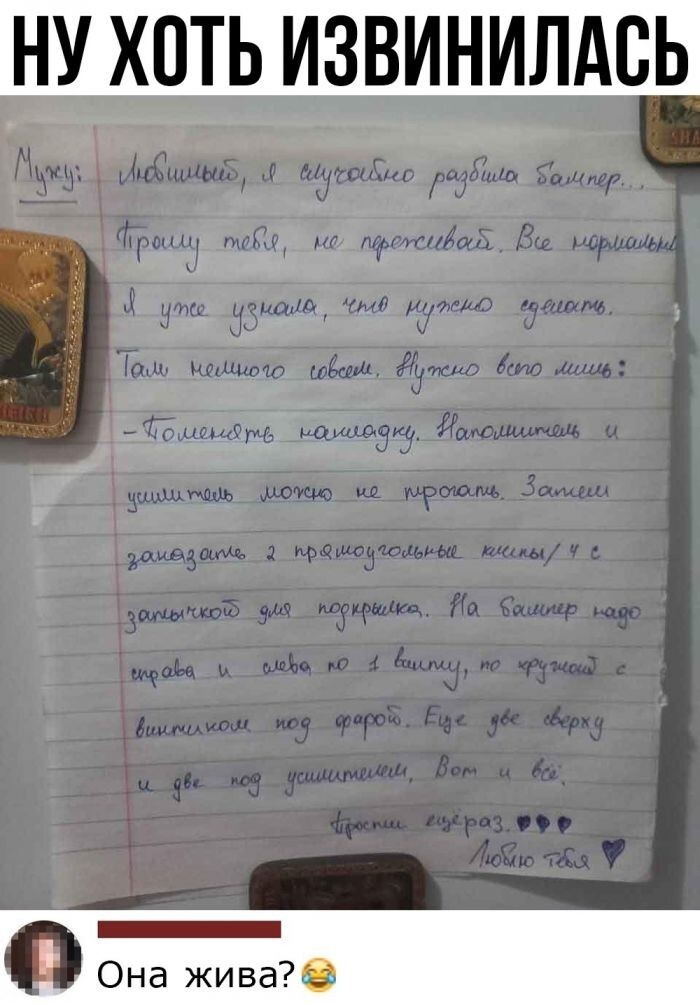 НУ ХОТЬ ИЗВИНИЛАСЬ
Мужу: Любимый, я случайно разбила бампер...
Прошу тебя, не переживай. Все нормально
Я уже узнала, что нужно сделать.
Там немного совсем. Нужно всего лишь:
- Поменять накладку. Наполнитель и
усилитель можно не трогать. Затем
заказать 2 прямоугольные клипсы/ 4 с
затычкой для подкрылка. На бампер надо
справа и слева по 1 винту, по круглой с
винтиком под фарой. Еще две сверху
и две под усилителем. Вот и всё.
Прости ещё раз. ♥♥♥
Люблю тебя ♥
Она жива?😂